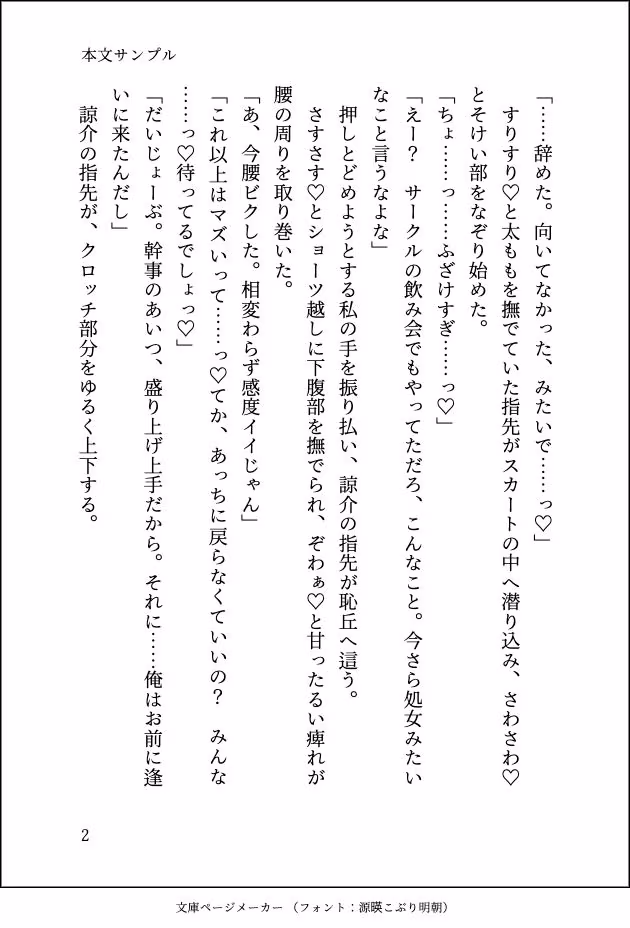 本文サンプル
「……辞めた。向いてなかった、みたいで……っ♡」
　すりすり♡と太ももを撫でていた指先がスカートの中へ潜り込み、さわさわ♡
とそけい部をなぞり始めた。
「ちょ……っ……ふざけすぎ……っ♡」
「えー？　サークルの飲み会でもやってただろ、こんなこと。今さら処女みたい
なこと言うなよな」
　押しとどめようとする私の手を振り払い、諒介の指先が恥丘へ這う。
　さすさす♡とショーツ越しに下腹部を撫でられ、ぞわぁ♡と甘ったるい痺れが
腰の周りを取り巻いた。
「あ、今腰ビクした。相変わらず感度イイじゃん」
「これ以上はマズいって……っ♡てか、あっちに戻らなくていいの？　みんな
……っ♡待ってるでしょっ♡」
「だいじょーぶ。幹事のあいつ、盛り上げ上手だから。それに……俺はお前に逢
いに来たんだし」
　諒介の指先が、クロッチ部分をゆるく上下する。
2
文庫ページメーカー（フォント：源暎こぶり明朝）